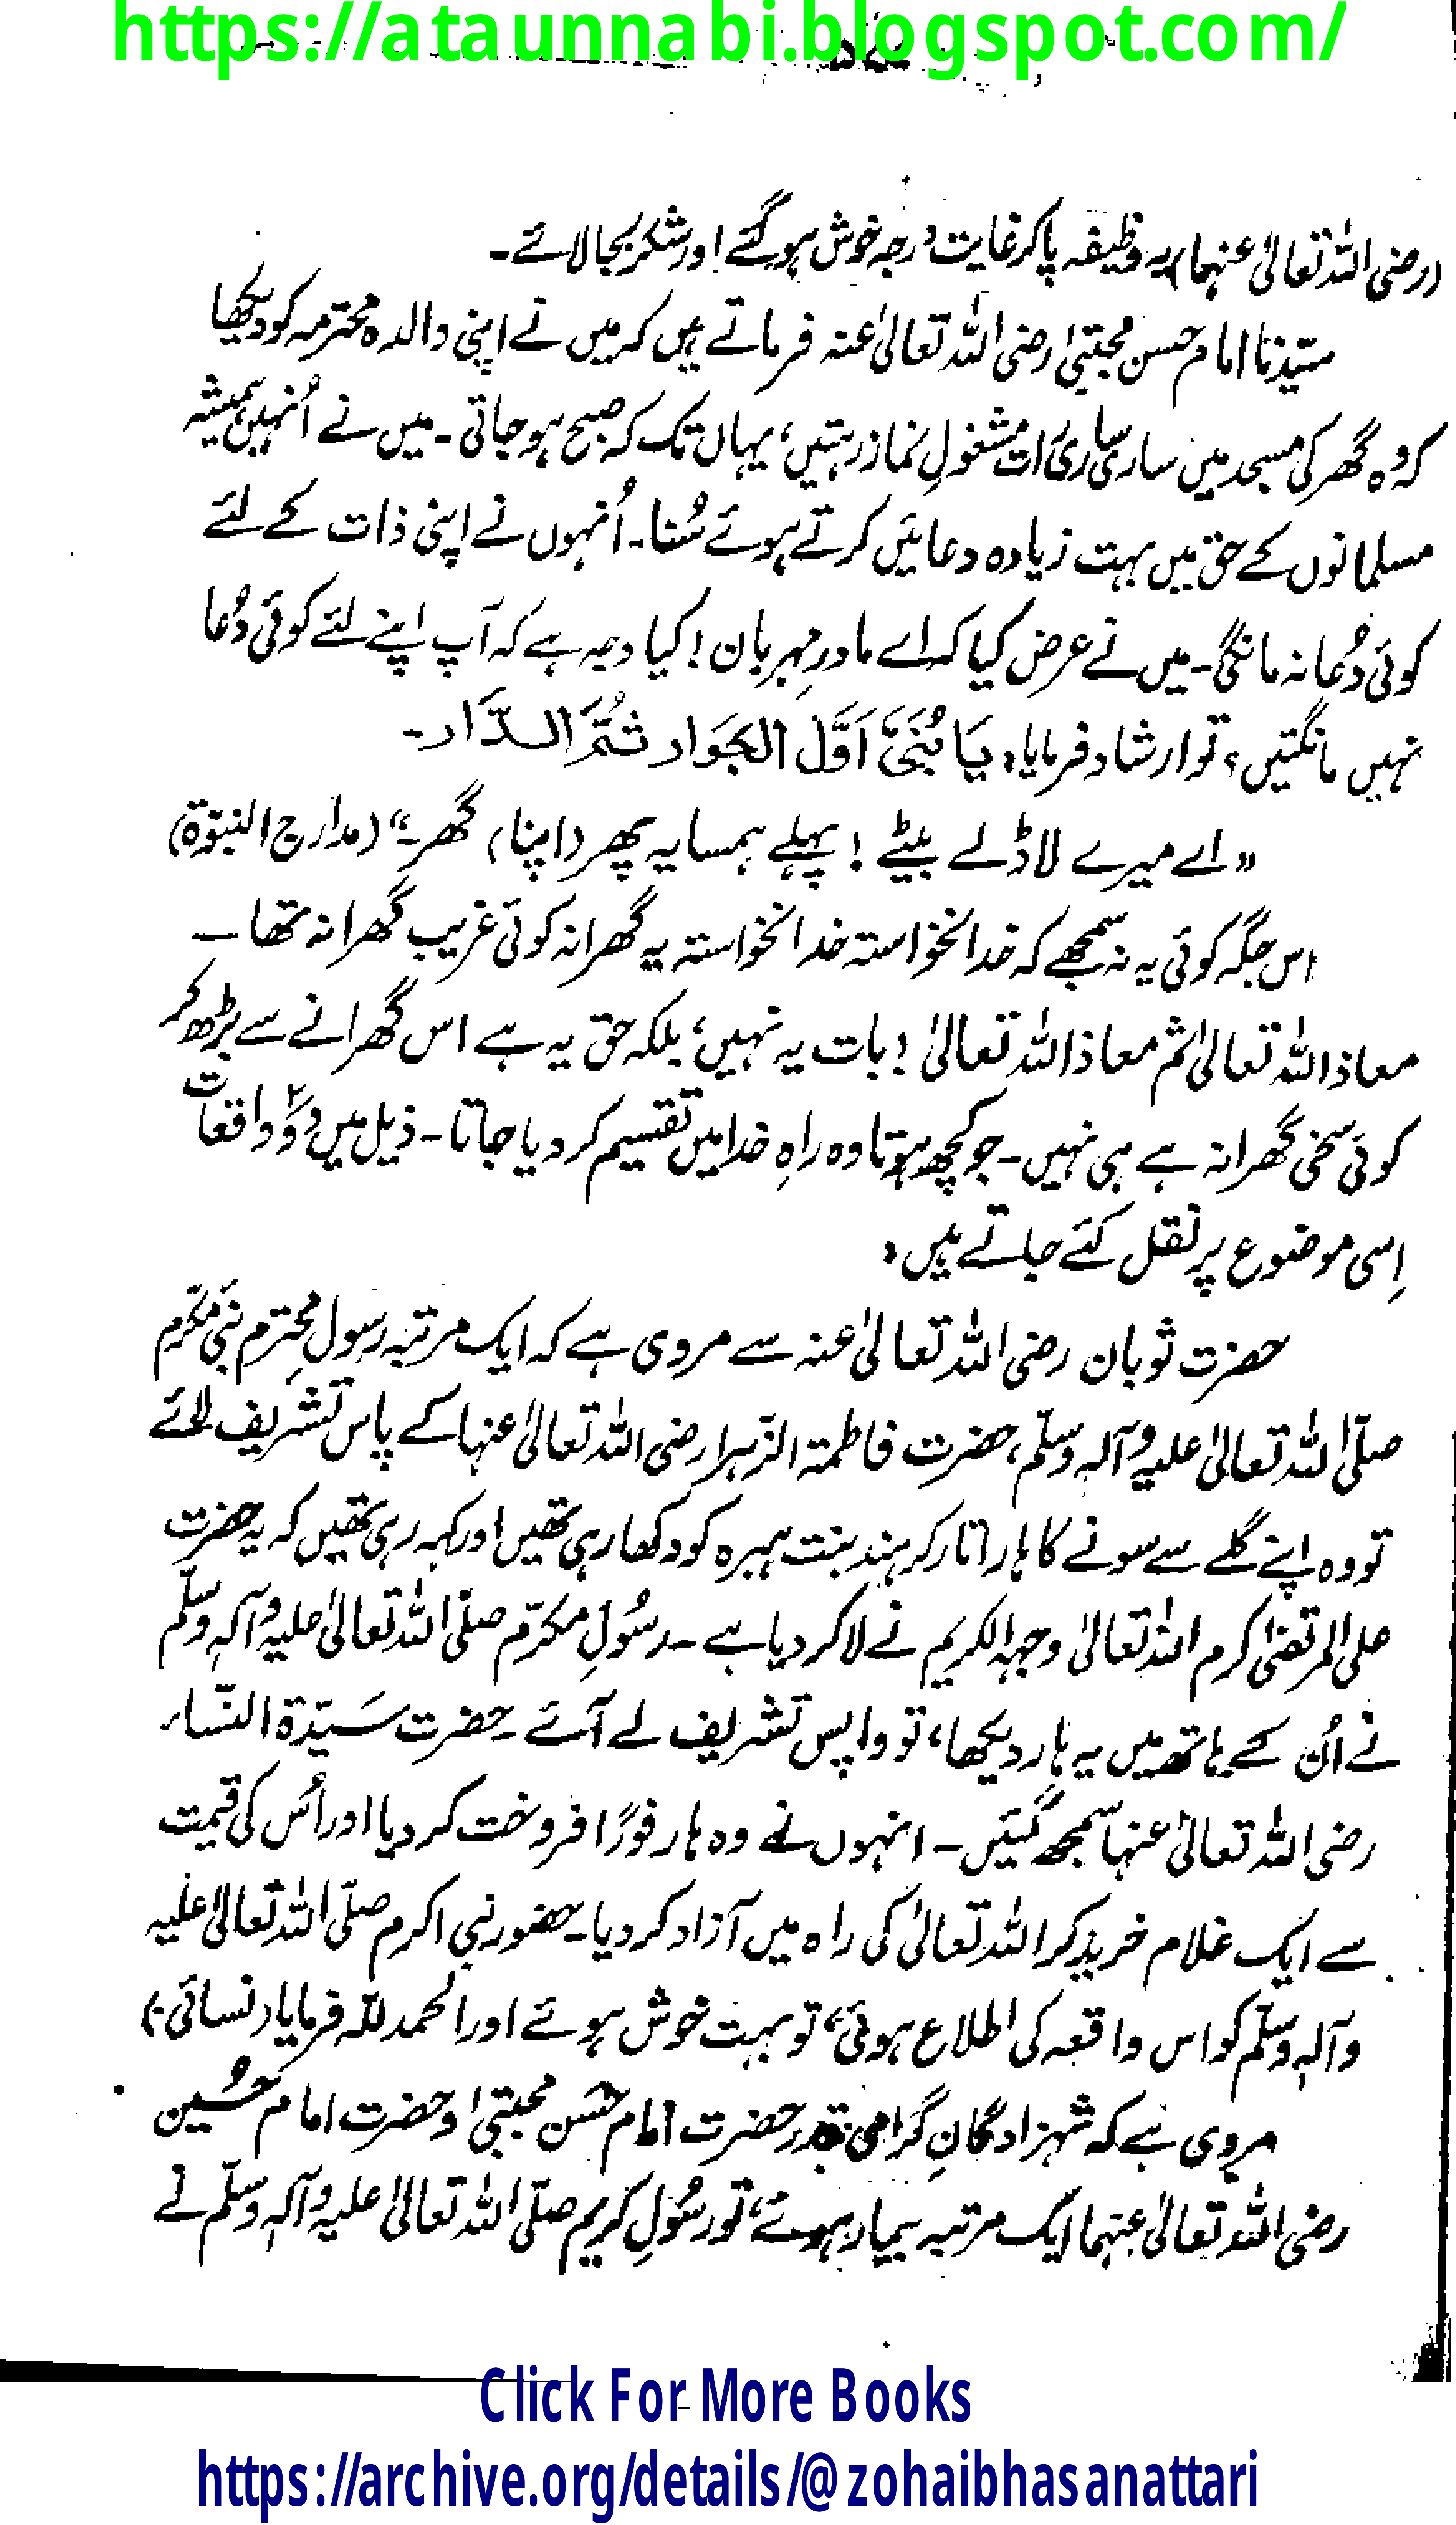 https://ataunnabi.blogspot.com/
(رضی اللہ تعالیٰ عنہما) یہ وظیفہ پاکر غایت درجہ خوش ہوگئے اور شکر بجا لائے۔
سیّدنا امام حسن مجتبیٰ رضی اللہ تعالیٰ عنہ فرماتے ہیں کہ میں نے اپنی والدہ محترمہ کو دیکھا
کہ وہ گھر کی مسجد میں ساری ساری رات مشغولِ نماز رہتیں، یہاں تک کہ صبح ہو جاتی۔ میں نے اُنہیں ہمیشہ
مسلمانوں کے حق میں بہت زیادہ دعائیں کرتے ہوئے سُنا۔ اُنہوں نے اپنی ذات کے لئے
کوئی دُعا نہ مانگی۔ میں نے عرض کیا کہ اے مادرِ مہربان! کیا وجہ ہے کہ آپ اپنے لئے کوئی دُعا
نہیں مانگتیں؟ تو ارشاد فرمایا: یَا بُنَیَّ اَوَّلَ الجَوَار ثُمَّ الدَّار۔
”اے میرے لاڈلے بیٹے! پہلے ہمسایہ پھر (اپنا) گھر۔“ (مدارج النبوّۃ)
اس جگہ کوئی یہ نہ سمجھے کہ خدانخواستہ خدانخواستہ یہ گھرانہ کوئی غریب گھرانہ تھا ۔
معاذ اللہ تعالیٰ ثم معاذ اللہ تعالیٰ! بات یہ نہیں، بلکہ حق یہ ہے اس گھرانے سے بڑھ کر
کوئی سخی گھرانہ ہے ہی نہیں۔ جو کچھ ہوتا وہ راہِ خدا میں تقسیم کر دیا جاتا۔ ذیل میں دوؔ ۲ واقعات
اِسی موضوع پر نقل کئے جاتے ہیں:
حضرت ثوبان رضی اللہ تعالیٰ عنہ سے مروی ہے کہ ایک مرتبہ رسولِ محترم نبیٔ مکرّم
صلّی اللہ تعالیٰ علیہ وآلہٖ وسلّم، حضرت فاطمۃ الزّہرا رضی اللہ تعالیٰ عنہا کے پاس تشریف لائے
تو وہ اپنے گلے سے سونے کا ہار اُتار کر ہند بنت ہبیرہ کو دکھا رہی تھیں اور کہہ رہی تھیں کہ یہ حضرت
علی المرتضیٰ کرم اللہ تعالیٰ وجہہ الکریم نے لاکر دیا ہے ۔ رسُولِ مکرّم صلّی اللہ تعالیٰ علیہ وآلہٖ وسلّم
نے اُن کے ہاتھ میں یہ ہار دیکھا، تو واپس تشریف لے آئے ۔ حضرت سَیّدۃ النّساء
رضی اللہ تعالیٰ عنہا سمجھ گئیں۔ انہوں نے وہ ہار فورًا فروخت کر دیا اور اُس کی قیمت
سے ایک غلام خرید کر اللہ تعالیٰ کی راہ میں آزاد کر دیا۔ حضور نبی اکرم صلّی اللہ تعالیٰ علیہ
وآلہٖ وسلّم کو اس واقعہ کی اطلاع ہوئی، تو بہت خوش ہوئے اور الحمد للہ فرمایا (نسائی)
مروی ہے کہ شہزادگانِ گرامی قدر حضرت امام حسن مجتبیٰ و حضرت امام حُسین
رضی اللہ تعالیٰ عنہما ایک مرتبہ بیمار ہوئے، تو رسُولِ کریم صلّی اللہ تعالیٰ علیہ وآلہٖ وسلّم نے
Click For More Books
https://archive.org/details/@zohaibhasanattari